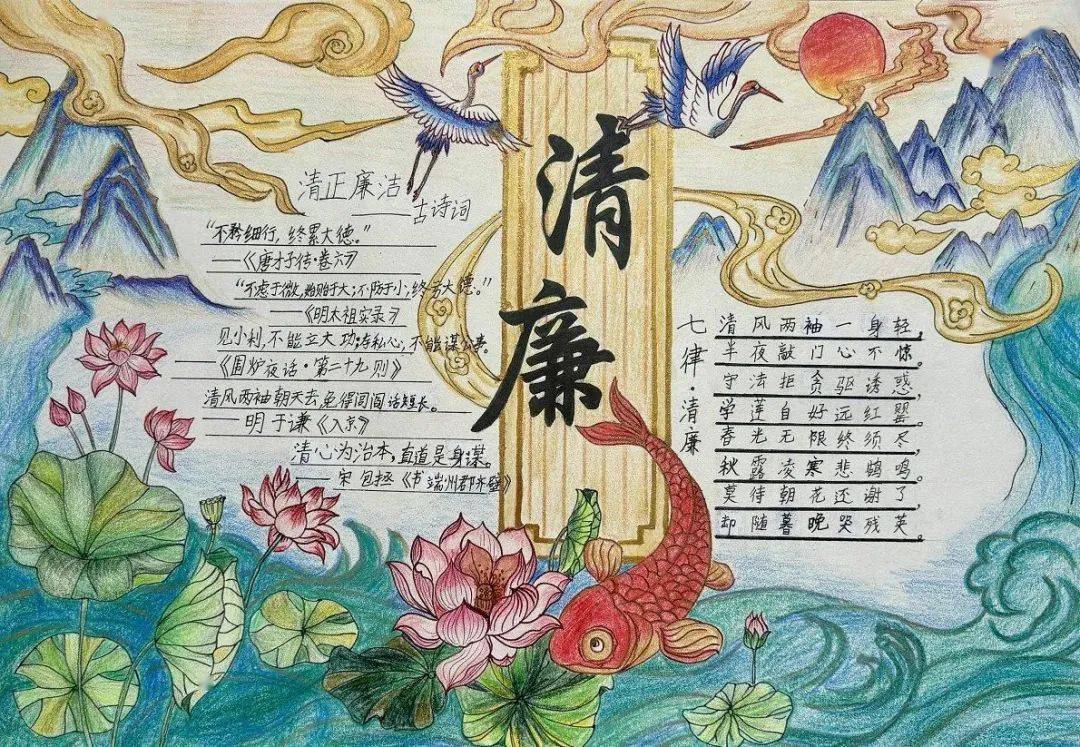 清正廉洁
——古诗词
“不矜细行，终累大德。”
——《唐才子传·卷六》
“不虑于微，始贻于大；不防于小，终亏大德。”
——《明太祖实录》
见小利，不能立大功；存私心，不能谋公事。
——《围炉夜话·第二十九则》
清风两袖朝天去，免得闾阎话短长。
——明 于谦《入京》
清心为治本，直道是身谋。
——宋 包拯《书端州郡斋壁》
清廉
七律·清廉
清风两袖一身轻，
半夜敲门心不惊。
守法拒贪驱诱惑，
学莲自好远红罂。
春光无限终须尽，
秋露凌寒悲鸣。
莫待朝花还谢了，
却随暮晚哭残英。